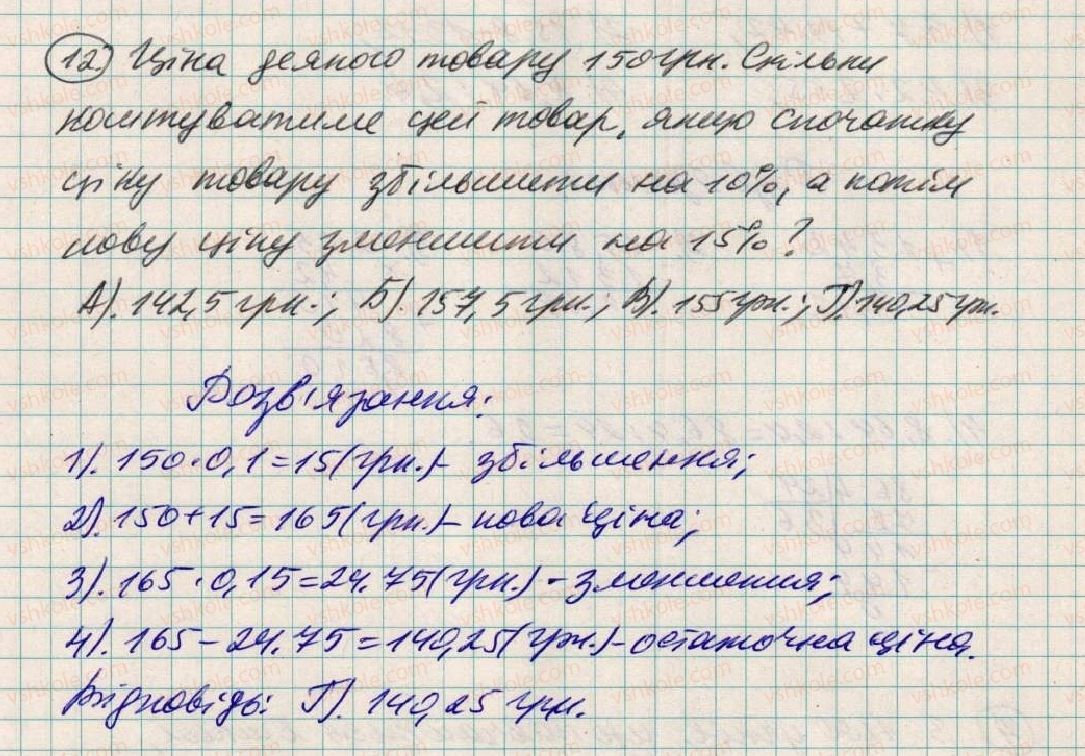 12) Ціна деякого товару 150 грн. Скільки
коштуватиме цей товар, якщо спочатку
ціну товару збільшити на 10%, а потім
нову ціну зменшити на 15%?
А). 142,5 грн.; Б). 157,5 грн.; В). 155 грн.; Г). 140,25 грн.
Розв'язання:
1). 150·0,1=15(грн.)- збільшення;
2). 150+15=165(грн.)- нова ціна;
3). 165·0,15=24.75(грн.)- зменшення;
4). 165-24.75=140,25(грн.)-остаточна ціна.
Відповідь: Г). 140,25 грн.